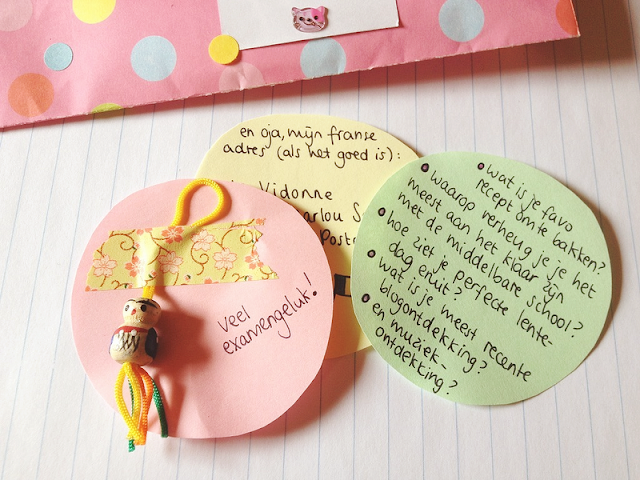 en oja, mijn franse
adres (als het goed is):
Vidonne
arlou S
Post
veel
examengeluk!
• wat is je favo
recept om te bakken?
• waarop verheug je je het
meest aan het klaar zijn
met de middelbare school?
• hoe ziet je perfecte lente-
dag eruit?
• wat is je meest recente
blogontdekking?
• en muziek-
ontdekking?